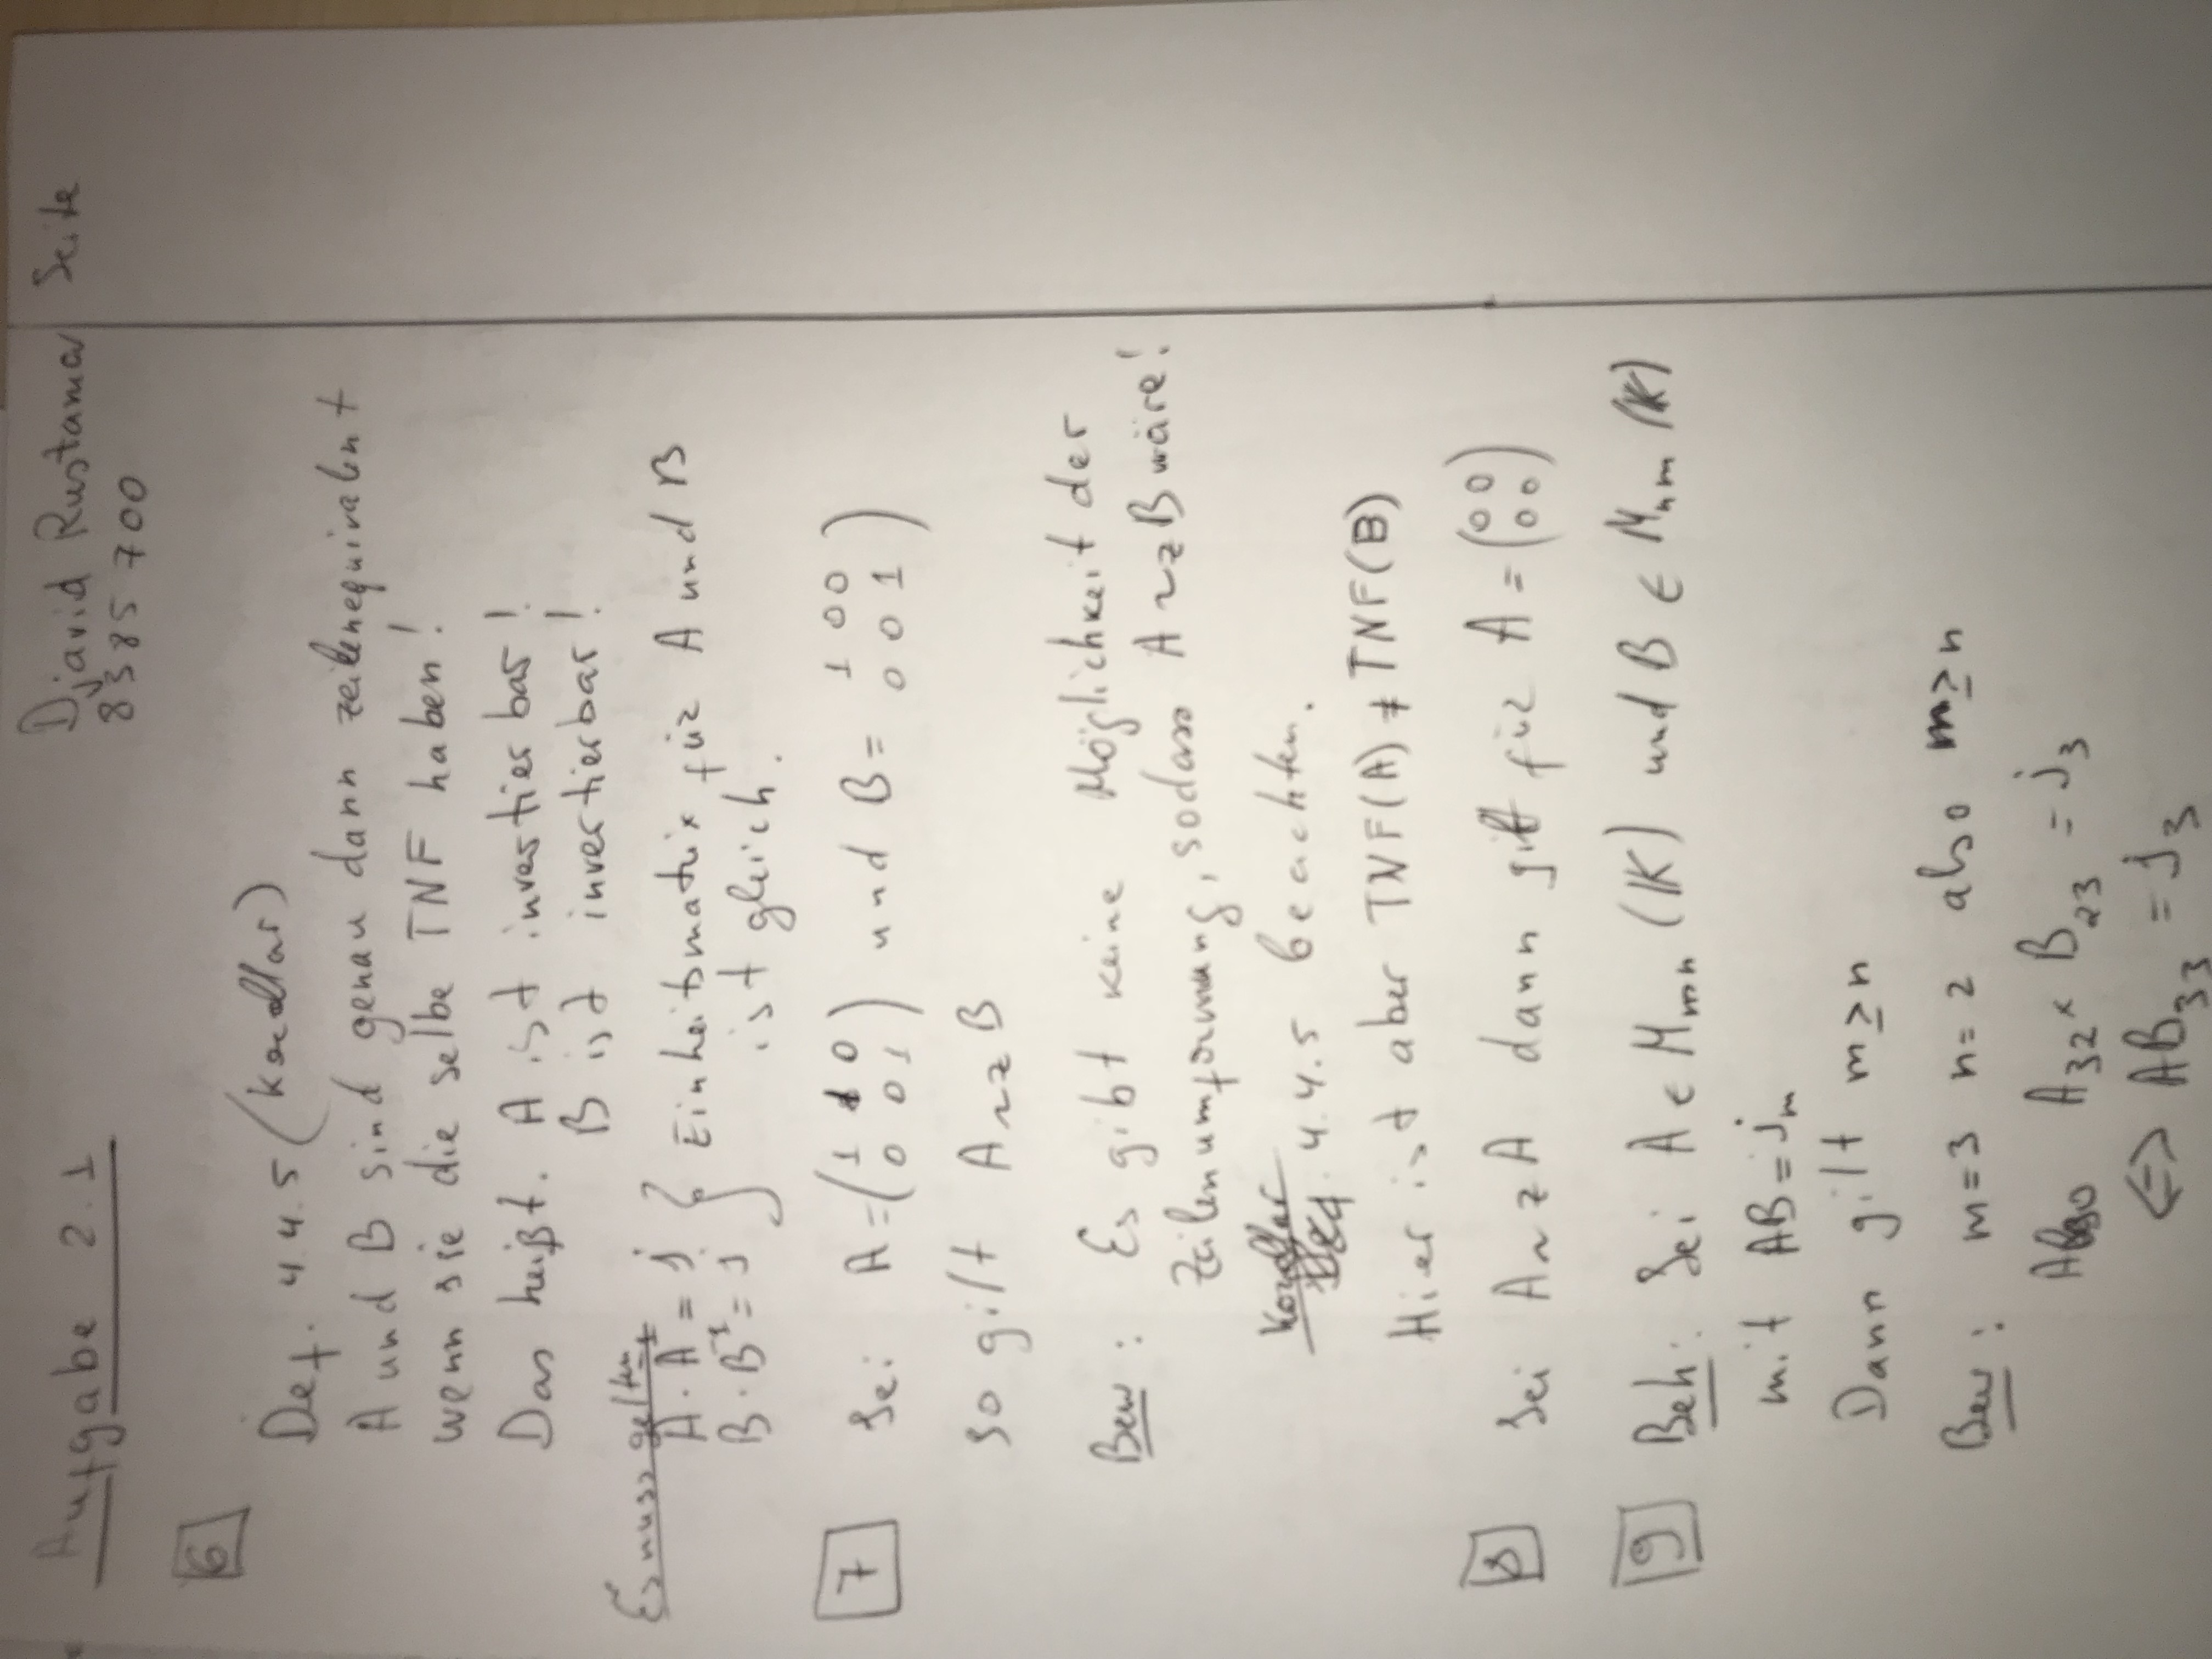 Aufgabe 2.1
Djavid Rustamov
Seite
8385700
6
Def. 4.4.5 (Korollar)
A und B sind genau dann zeilenequivalent
wenn sie die selbe TNF haben!
Das heißt. A ist invertierbar!
B ist invertierbar!
Es muss gelten
A · A⁻¹ = I
B · B⁻¹ = I } Einheitsmatrix für A und B
ist gleich.
7
Sei A = (1 1 0 und B = 1 0 0
0 0 1) 0 0 1)
so gilt A ~z B
Bew: Es gibt keine Möglichkeit der
Zeilenumformung, sodass A ~z B wäre!
Korollar
4.4.5 beachten.
Hier ist aber TNF(A) ≠ TNF(B)
8 Sei A ~z A dann gilt für A = (0 0
0 0)
9 Beh: Sei A ∈ Mmn (K) und B ∈ Mnm (K)
mit AB = Im
Dann gilt m ≥ n
Bew: m = 3 n = 2 also m ≥ n
Also A32 × B23 = I3
⟺ AB33 = I3